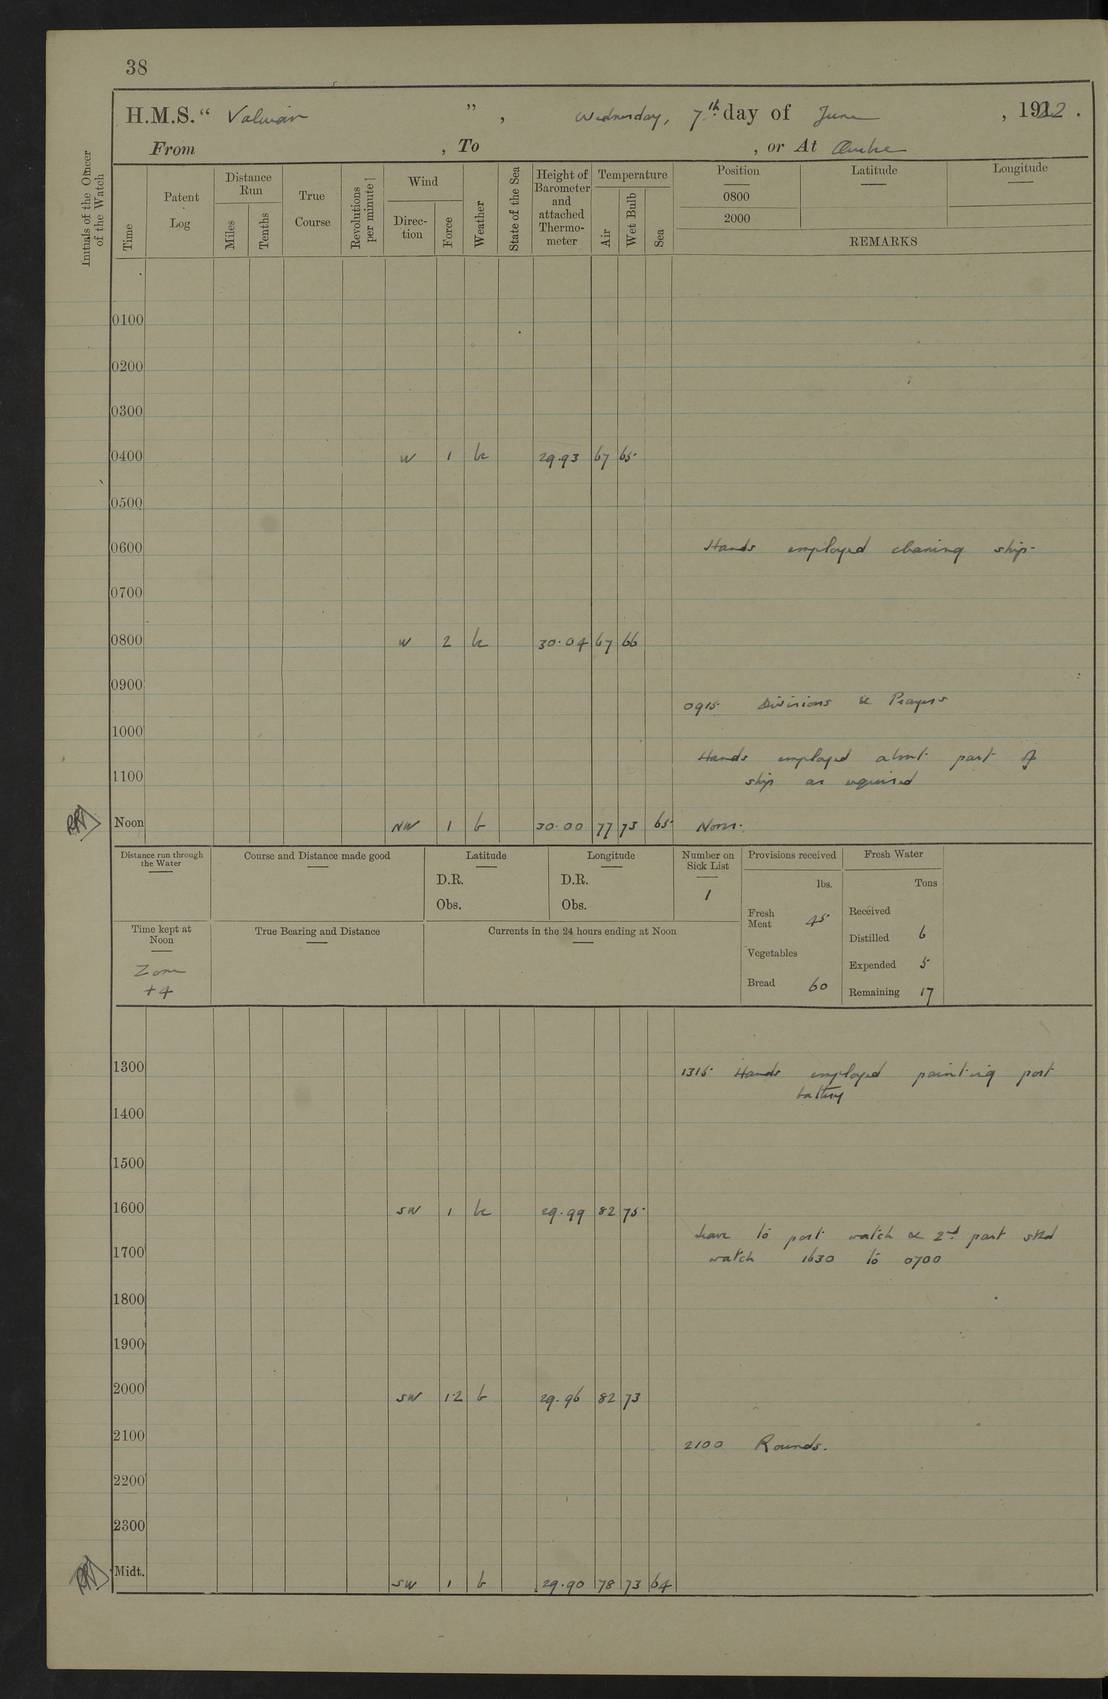 38
H.M.S. “ Valerian ” , Wednesday, 7th day of June , 1922 .
From , To , or At Quebec
Initials of the Officer of the Watch
Time
Patent Log
Distance Run
Miles
Tenths
True Course
Revolutions per minute
Wind
Direc-tion
Force
Weather
State of the Sea
Height of Barometer and attached Thermo-meter
Temperature
Air
Wet Bulb
Sea
Position Latitude Longitude
0800
2000
REMARKS
0100
0200
0300
0400 W 1 bc 29.93 67 65
0500
0600 Hands employed cleaning ship.
0700
0800 W 2 bc 30.04 67 66
0900
0915 Divisions & Prayers
1000
Hands employed about part of
1100 ship as required
Noon NW 1 b 30.00 77 73 65 Noon.
Distance run through the Water
Course and Distance made good
Latitude
D.R.
Obs.
Longitude
D.R.
Obs.
Number on Sick List
1
Provisions received
lbs.
Fresh Meat 45
Vegetables
Bread 60
Fresh Water
Tons
Received
Distilled 6
Expended 5
Remaining 17
Time kept at Noon
Zone
+4
True Bearing and Distance
Currents in the 24 hours ending at Noon
1300 1315 Hands employed painting port
battery
1400
1500
1600 SW 1 bc 29.99 82 75
Leave to port watch & 2nd part stbd
1700 watch 1630 to 0700
1800
1900
2000 SW 1.2 b 29.96 82 73
2100 2100 Rounds.
2200
2300
Midt. SW 1 b 29.90 78 73 64